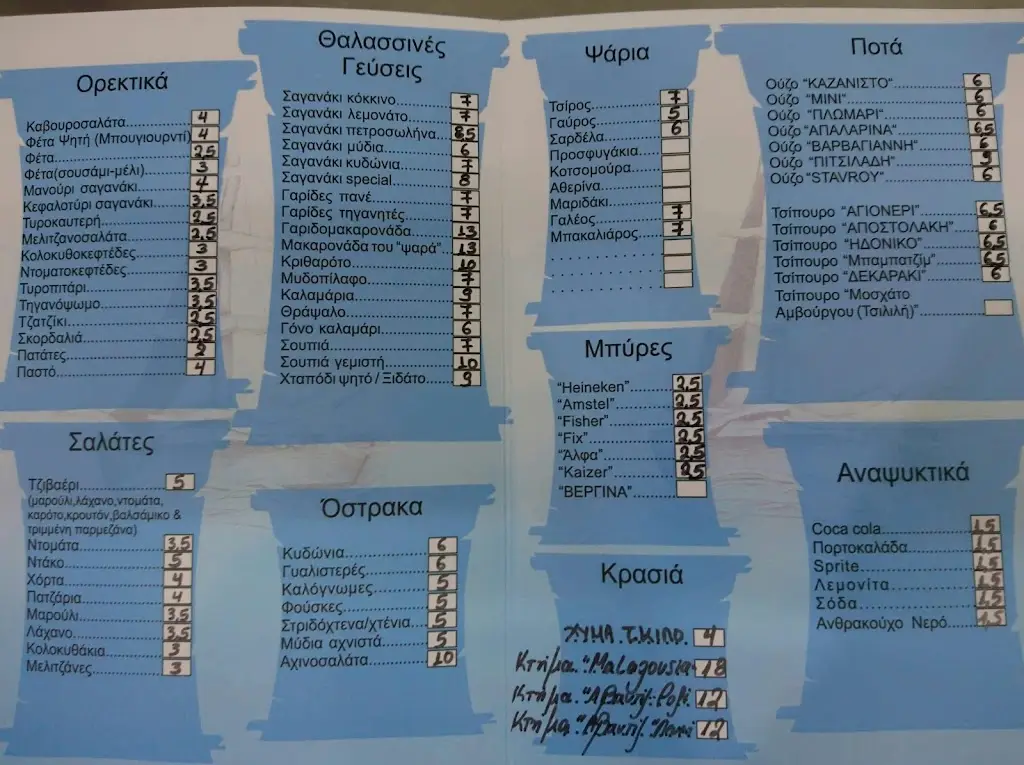 Ορεκτικά
Καβουροσαλάτα 4
Φέτα Ψητή (Μπουγιουρντί) 4
Φέτα 2,5
Φέτα(σουσάμι-μέλι) 3
Μανούρι σαγανάκι 4
Κεφαλοτύρι σαγανάκι 3,5
Τυροκαυτερή 2,5
Μελιτζανοσαλάτα 2,5
Κολοκυθοκεφτέδες 3
Ντοματοκεφτέδες 3
Τυροπιτάρι 3,5
Τηγανόψωμο 3,5
Τζατζίκι 2,5
Σκορδαλιά 2,5
Πατάτες 2
Παστό 4
Σαλάτες
Τζιβαέρι 5
(μαρούλι,λάχανο,ντομάτα,
καρότο,κρουτόν,βαλσάμικο &
τριμμένη παρμεζάνα)
Ντομάτα 3,5
Ντάκο 5
Χόρτα 4
Πατζάρια 4
Μαρούλι 3,5
Λάχανο 3,5
Κολοκυθάκια 3
Μελιτζάνες 3
Θαλασσινές
Γεύσεις
Σαγανάκι κόκκινο 7
Σαγανάκι λεμονάτο 7
Σαγανάκι πετροσωλήνα 8,5
Σαγανάκι μύδια 6
Σαγανάκι κυδώνια 7
Σαγανάκι special 8
Γαρίδες πανέ 7
Γαρίδες τηγανητές 7
Γαριδομακαρονάδα 13
Μακαρονάδα του “ψαρά” 13
Κριθαρότο 10
Μυδοπίλαφο 7
Καλαμάρια 9
Θράψαλο 7
Γόνο καλαμάρι 6
Σουπιά 7
Σουπιά γεμιστή 10
Χταπόδι ψητό / Ξιδάτο 9
Όστρακα
Κυδώνια 6
Γυαλιστερές 6
Καλόγνωμες 5
Φούσκες 5
Στριδόχτενα/χτένια 5
Μύδια αχνιστά 5
Αχινοσαλάτα 10
Ψάρια
Τσίρος 7
Γαύρος 5
Σαρδέλα 6
Προσφυγάκια
Κοτσομούρα
Αθερίνα
Μαριδάκι
Γαλέος 7
Μπακαλιάρος 7
Μπύρες
“Heineken” 2,5
“Amstel” 2,5
“Fisher” 2,5
“Fix” 2,5
“Άλφα” 2,5
“Kaizer” 2,5
“ΒΕΡΓΙΝΑ”
Κρασιά
ΧΥΜΑ 4
Κτημα “Malagousia 18
Κτημα 12
Κτημα 12
Ποτά
Ούζο “ΚΑΖΑΝΙΣΤΟ“ 6
Ούζο “ΜΙΝΙ“ 6
Ούζο “ΠΛΩΜΑΡΙ“ 6
Ούζο “ΑΠΑΛΑΡΙΝΑ“ 6,5
Ούζο “ΒΑΡΒΑΓΙΑΝΝΗ“ 6
Ούζο “ΠΙΤΣΙΛΑΔΗ“ 9
Ούζο “STAVROY“ 6
Τσίπουρο “ΑΓΙΟΝΕΡΙ” 6,5
Τσίπουρο “ΑΠΟΣΤΟΛΑΚΗ” 6
Τσίπουρο “ΗΔΟΝΙΚΟ” 6,5
Τσίπουρο “Μπαμπατζίμ” 6,5
Τσίπουρο “ΔΕΚΑΡΑΚΙ” 6
Τσίπουρο “Μοσχάτο
Αμβούργου (Τσιλιλή)”
Αναψυκτικά
Coca cola 1,5
Πορτοκαλάδα 1,5
Sprite 1,5
Λεμονίτα 1,5
Σόδα 1,5
Ανθρακούχο Νερό 1,5